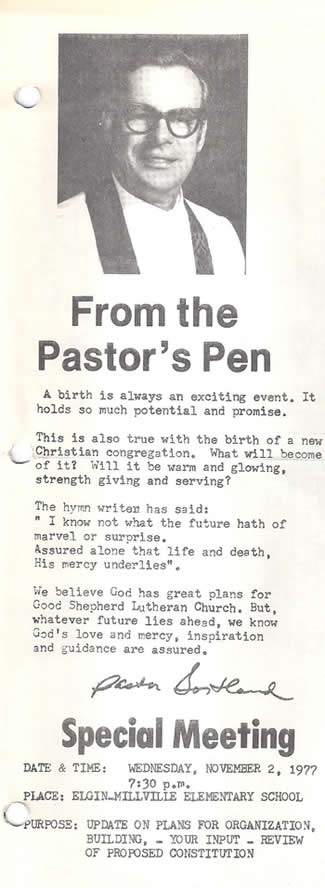 From the
Pastor's Pen
A birth is always an exciting event. It
holds so much potential and promise.
This is also true with the birth of a new
Christian congregation. What will become
of it? Will it be warm and glowing,
strength giving and serving?
The hymn writer has said:
" I know not what the future hath of
marvel or surprise.
Assured alone that life and death,
His mercy underlies".
We believe God has great plans for
Good Shepherd Lutheran Church. But,
whatever future lies ahead, we know
God's love and mercy, inspiration
and guidance are assured.
Pastor
Special Meeting
DATE & TIME: WEDNESDAY, NOVEMBER 2, 1977
7:30 p.m.
PLACE: ELGIN-MILLVILLE ELEMENTARY SCHOOL
PURPOSE: UPDATE ON PLANS FOR ORGANIZATION,
BUILDING, - YOUR INPUT - REVIEW
OF PROPOSED CONSTITUTION